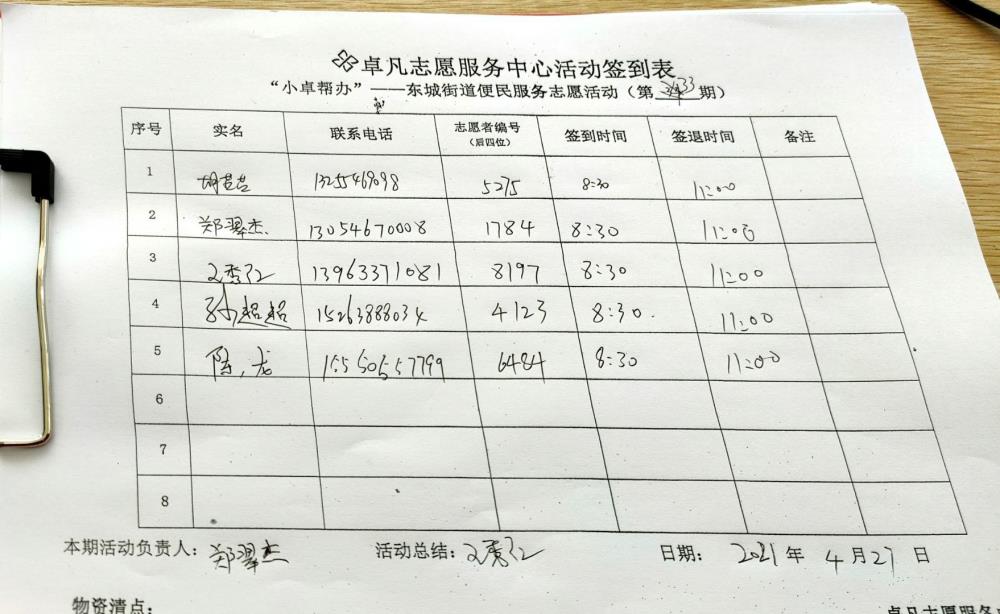 卓凡志愿服务中心活动签到表
“小卓帮办”——东城街道便民服务志愿活动(第33期)
序号 实名 联系电话 志愿者编号(后四位) 签到时间 签退时间 备注
1 胡苔苔 13255469098 5275 8:30 11:00
2 郑翠杰 13054670008 1784 8:30 11:00
3 文秀红 13963371081 8197 8:30 11:00
4 孙超超 15263888034 4123 8:30 11:00
5 陈龙 15550557799 6484 8:30 11:00
6
7
8
本期活动负责人:郑翠杰 活动总结:文秀红 日期:2021年4月27日
物资清点: 卓凡志愿服务